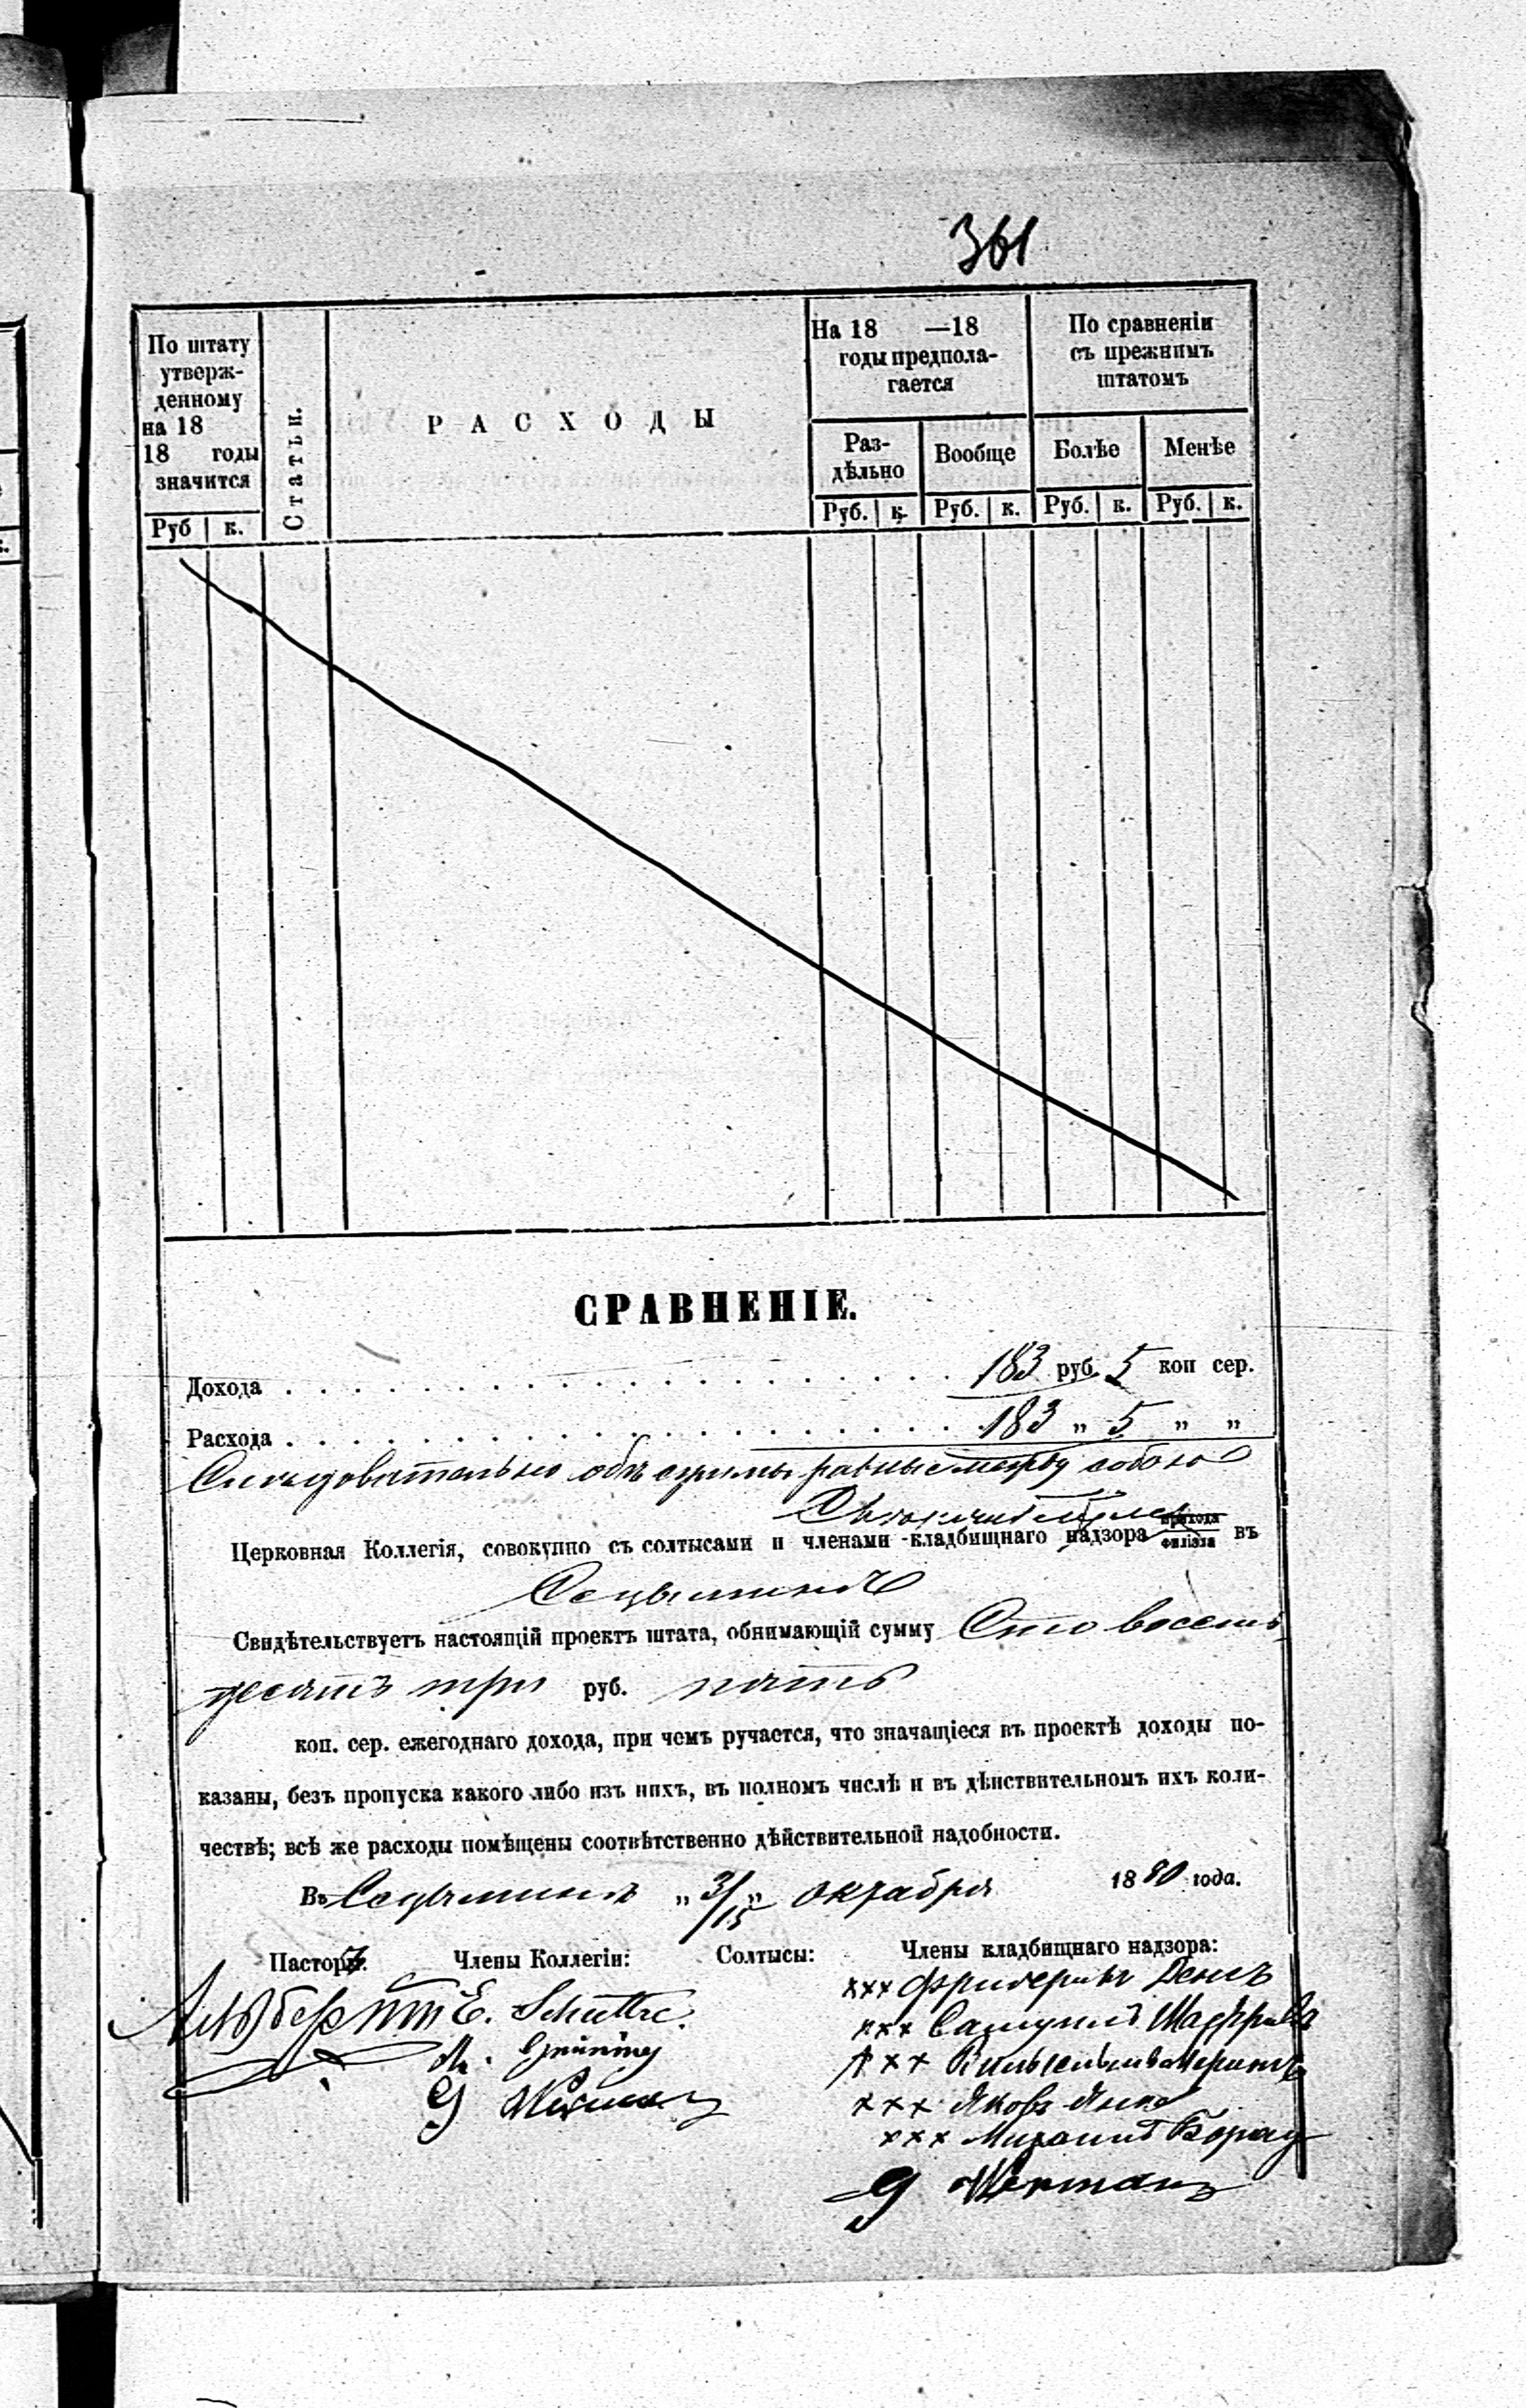 361
По штату
утверж-
денному
на 18
18 годы
значится
Статьи.
РАСХОДЫ
На 18 —18
годы предпола-
гается
По сравненіи
съ прежнимъ
штатомъ
Раз-
дѣльно
Вообще
Болѣе
Менѣе
Руб к. Руб. к. Руб. к. Руб. к. Руб. к.
СРАВНЕНІЕ.
Дохода 183 руб. 5 коп сер.
Расхода 183 „ 5 „ „
Слѣдовательно обѣ суммы равны между собою
Церковная Коллегія, совокупно съ солтысами и членами кладбищнаго надзора прихода филіала въ
Свидѣтельствуетъ настоящій проектъ штата, обнимающій сумму Сто восемь
десятъ три руб. пять
коп. сер. ежегоднаго дохода, при чемъ ручается, что значащіеся въ проектѣ доходы по-
казаны, безъ пропуска какого либо изъ нихъ, въ полномъ числѣ и въ дѣйствительномъ ихъ коли-
чествѣ; всѣ же расходы помѣщены соотвѣтственно дѣйствительной надобности.
Въ Сецыминѣ „3/15„ октября 1880 года.
Пасторъ. Члены Коллегіи: Солтысы: Члены кладбищнаго надзора:
E. Schuttre.
xxx Фридерикъ
xxx Самуилъ
xxx Вильгельмъ
xxx Яковъ
xxx Михаилъ